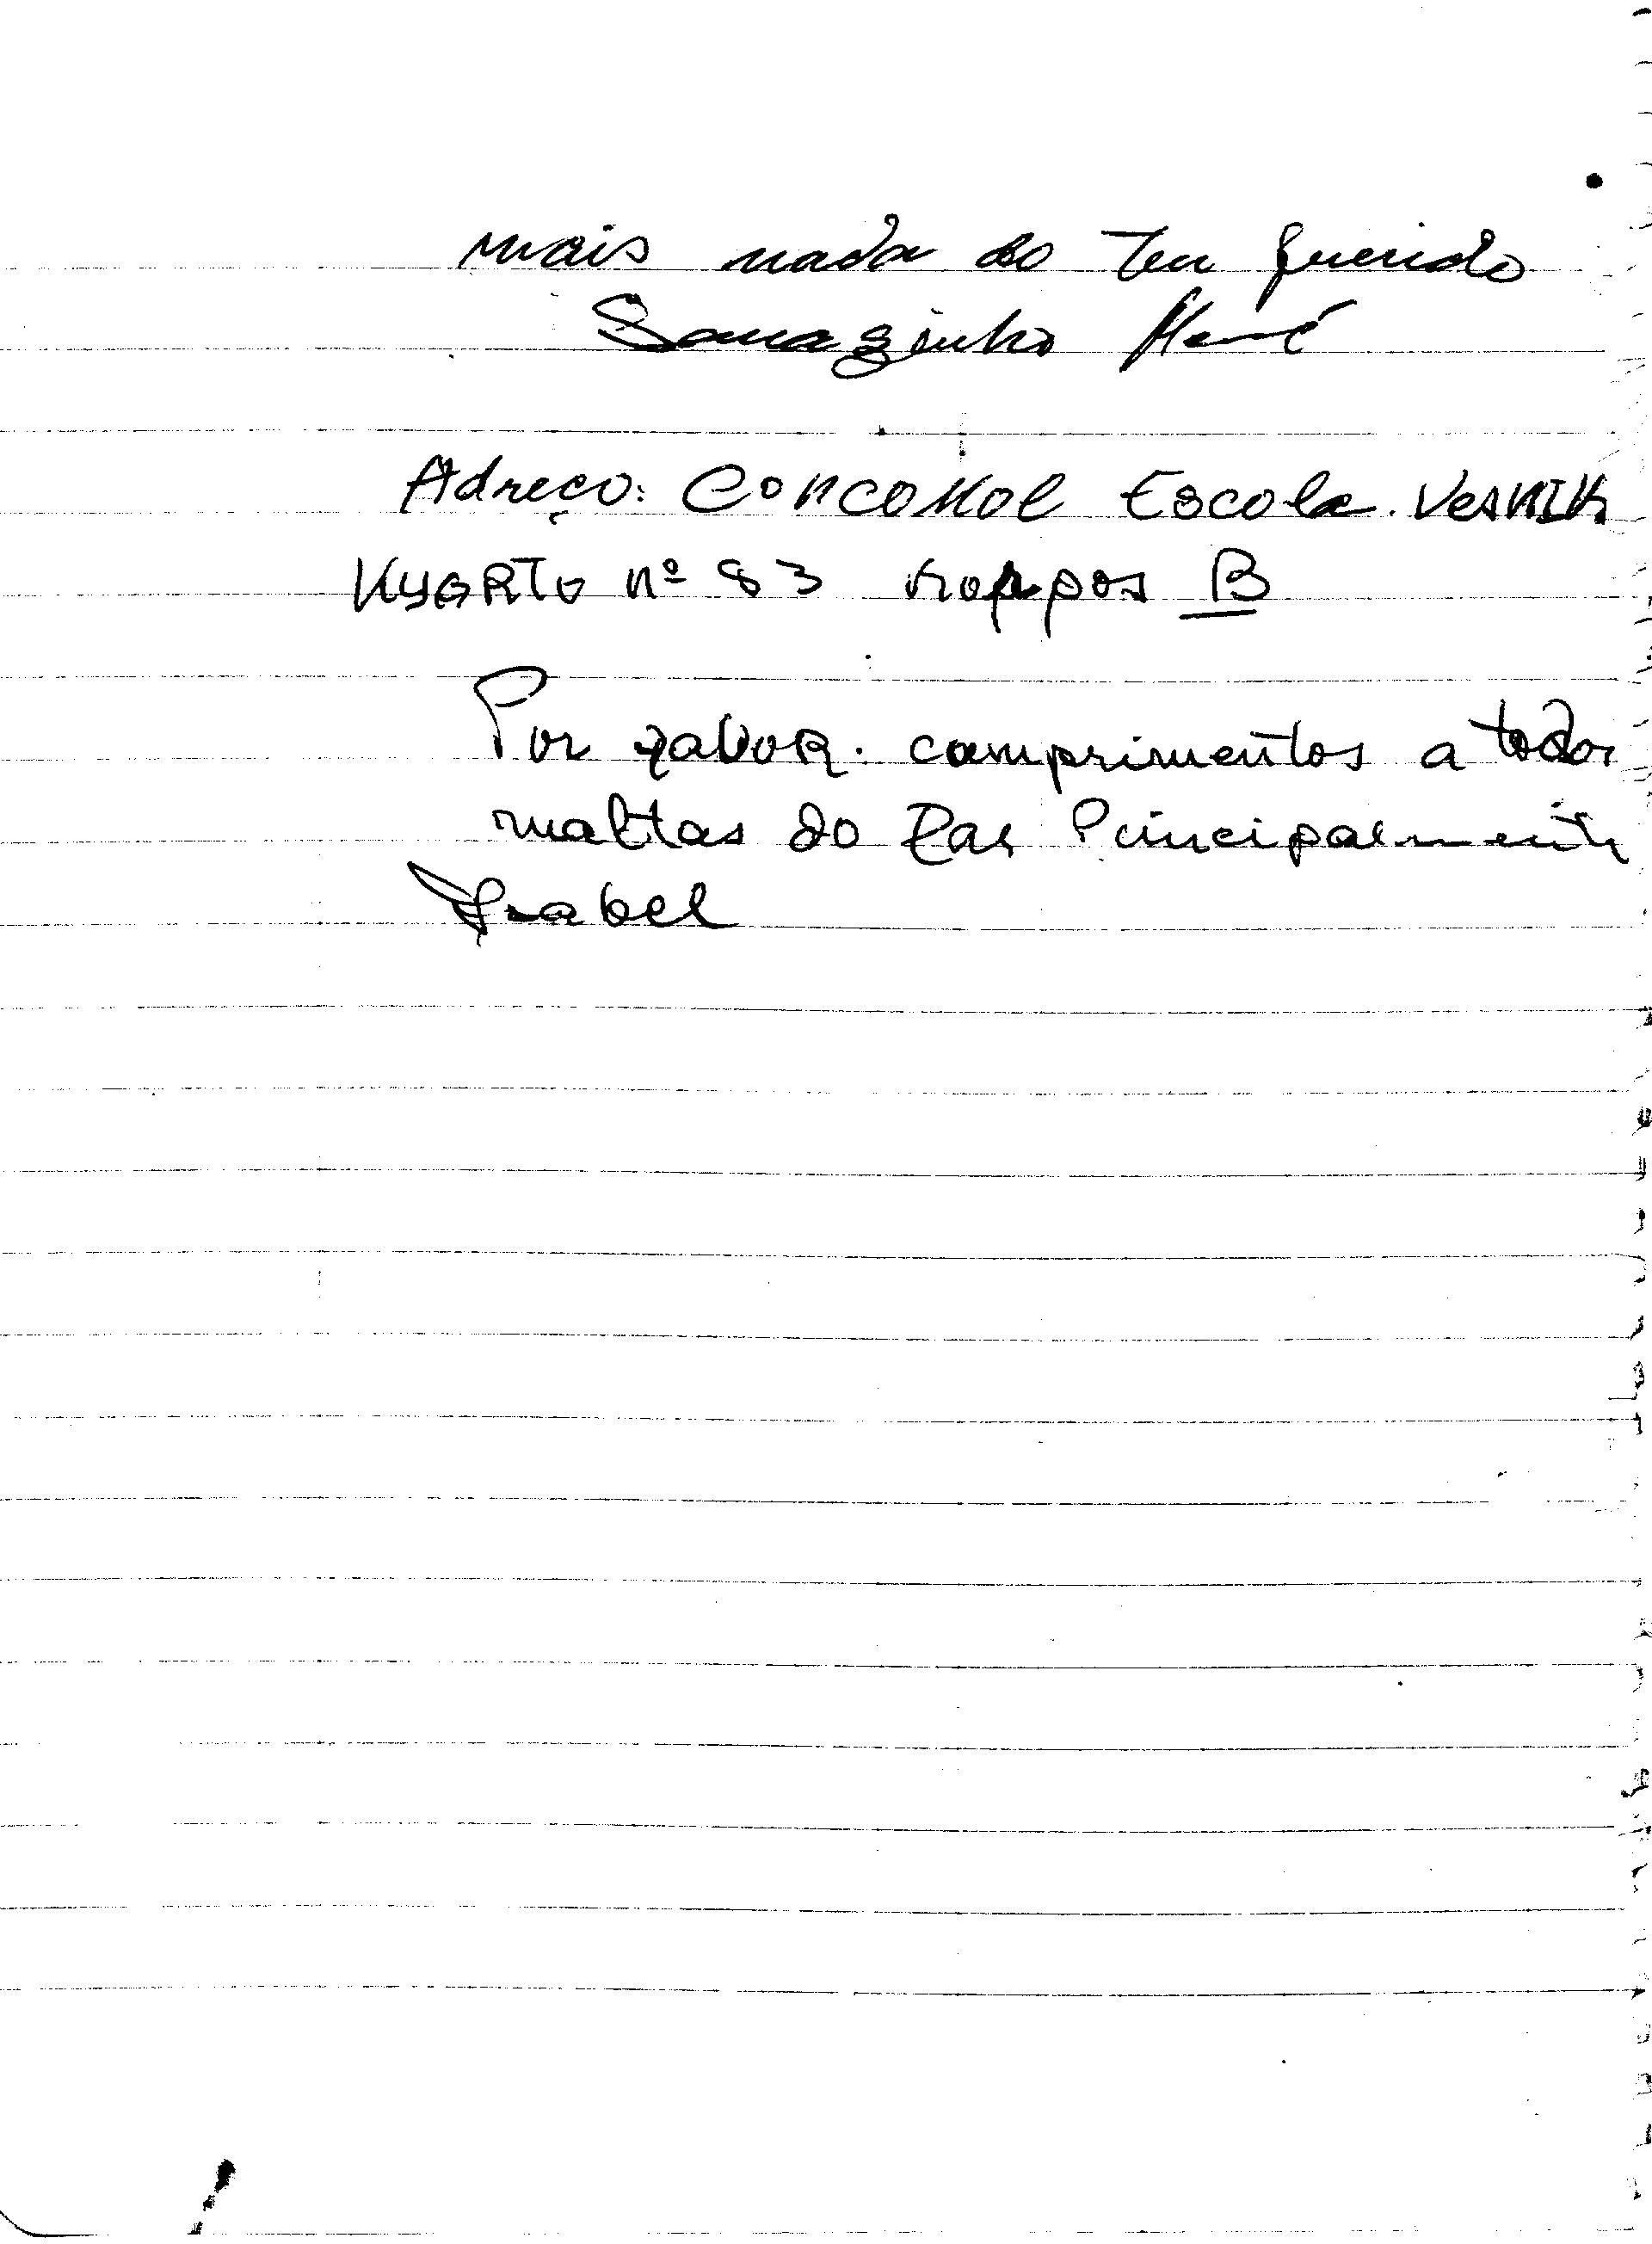 mais nada do Teu querido
Samazinho
Adreço: Concomol Escola. Vesnik
KyARTO nº 83 Kopпos B
Por favor. comprimentos a todos
maltas do Lar Principalmente
Isabel